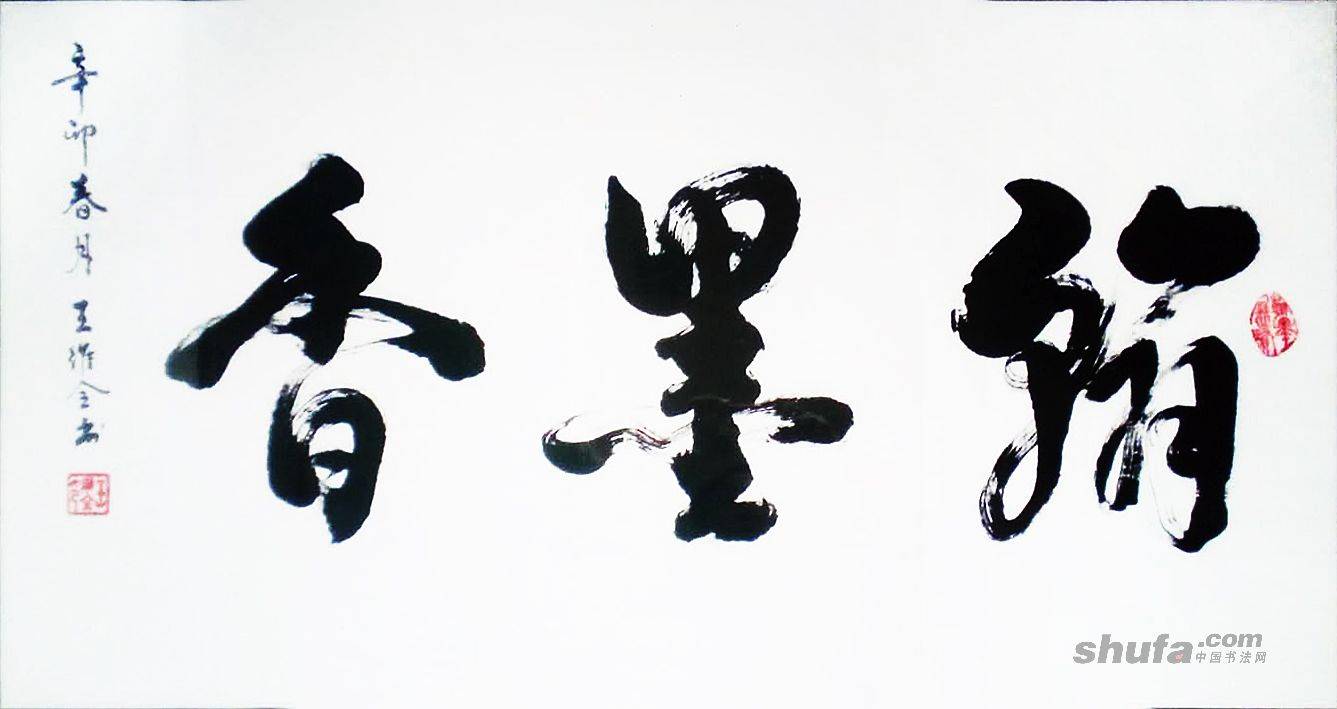 翰墨香
辛卯春月 王维全书
shufa.com
中国书法网